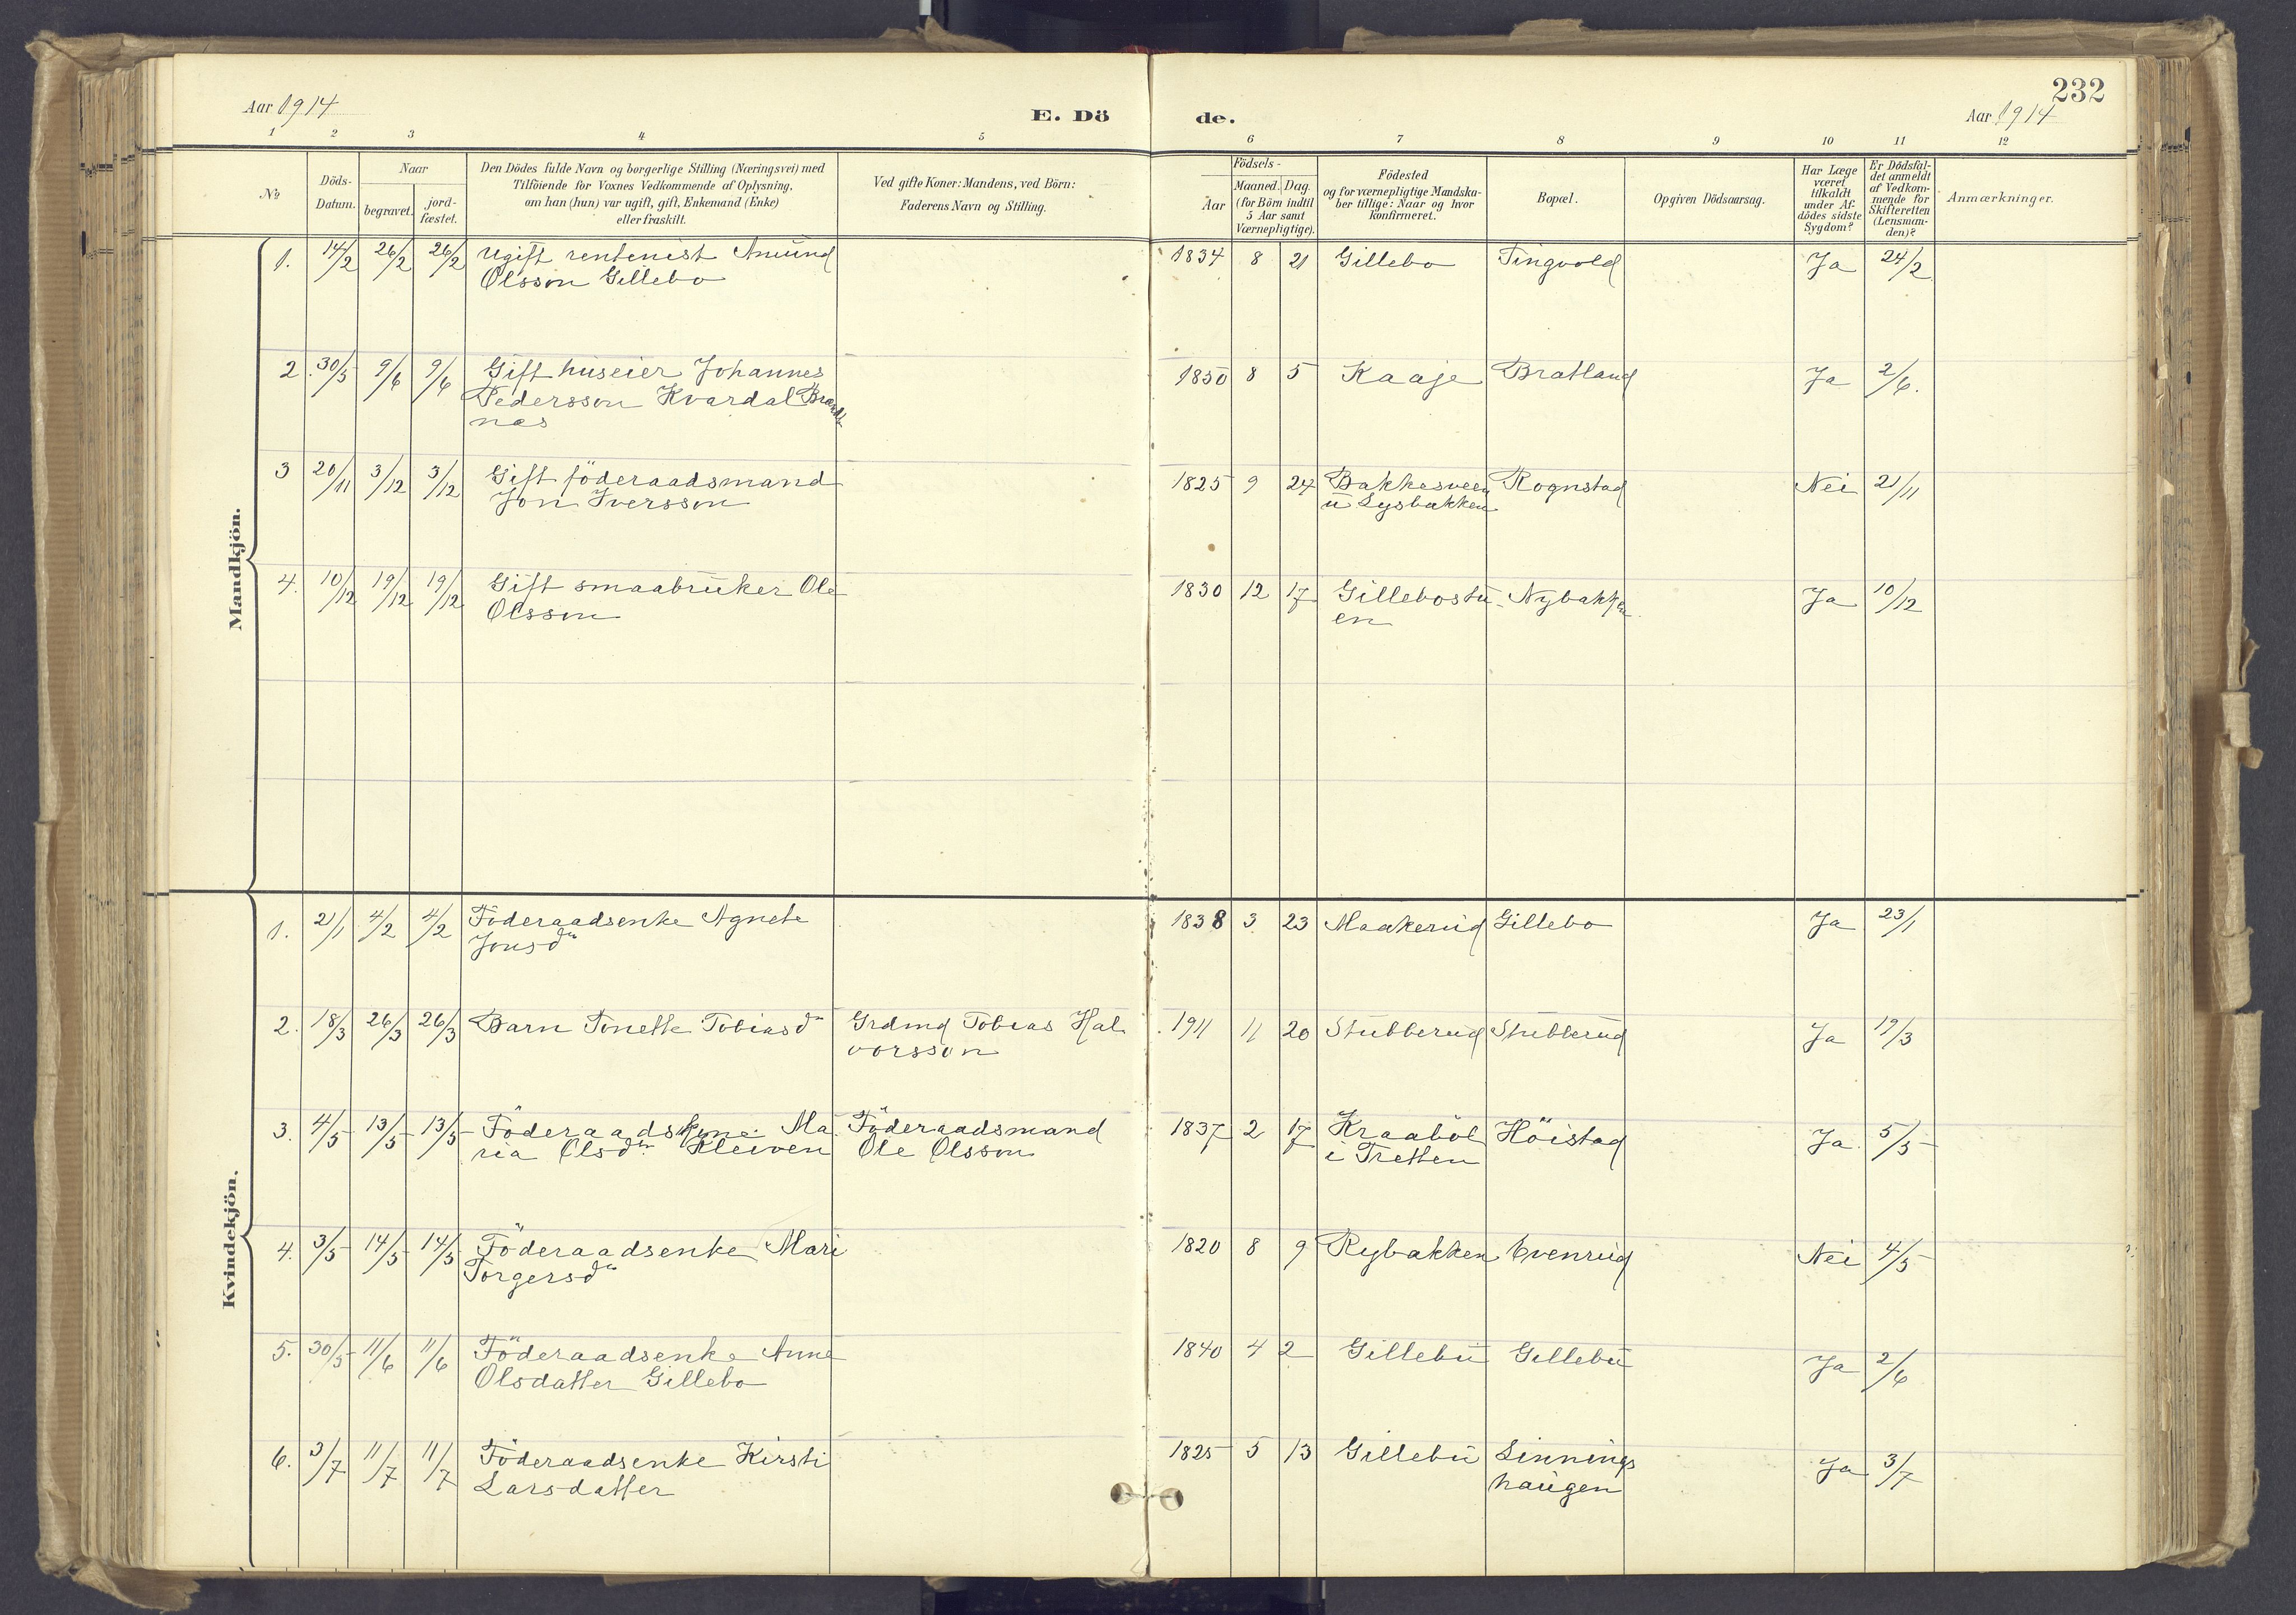 232
Aar 1914
E. Dö
de.
Aar 1914
1 2 3 4 5 6 7 8 9 10 11 12
No
Döds-Datum.
Naar
begravet.
jord-fæstet.
Den Dödes fulde Navn og borgerlige Stilling (Næringsvei) med
Tilföiende for Voxnes Vedkommende af Oplysning,
om han (hun) var ugift, gift, Enkemand (Enke)
eller fraskilt.
Ved gifte Koner: Mandens, ved Börn:
Faderens Navn og Stilling.
Födsels-
Aar
Maaned. Dag.
(for Börn indtil
5 Aar samt
Værnepligtige).
Födested
og for værnepligtige Mandska-
ber tillige: Naar og hvor
konfirmeret.
Bopæl.
Opgiven Dödsaarsag.
Har Læge
været
tilkaldt
under Af-
dödes sidste
Sygdom?
Er Dödsfal-
det anmeldt
af Vedkom-
mende for
Skifteretten
(Lensman-
den)?
Anmærkninger.
Mandkjön.
1. 14/2 26/2 26/2 Ugift rentenist Amund 1834 8 21 Gillebo Tingvold Ja 24/2
Olsson Gillebo
2. 30/5 9/6 9/6 Gift huseier Johannes 1850 8 5 Kaaje Bratland Ja 2/6.
Pedersson Kvardal
nes
3 20/11 3/12 3/12 Gift föderaadsmand 1825 9 24 Bakkesveen Rognstad Nei 21/11
Jon Iversson u Lysbakken
4. 10/12 19/12 19/12 Gift smaabruker Ole 1830 12 17 Gillebostu- Nybakken Ja 10/12
Olsson en
Kvindekjön.
1. 21/1 4/2 4/2 Föderaadsenke Agnete 1838 3 23 Maakerud Gillebo Ja 23/1
Jonsdtr
2. 18/3 26/3 26/3 Barn Tonette Tobiasdr Grdmd Tobias Hal 1911 11 20 Stubberud Stubberud Ja 19/3
vorsson
3. 4/5 13/5 13/5 Föderaadskone Ma Föderaadsmand 1837 2 17 Kraaböl Höistad Ja 5/5
ria Olsdtr Kleiven Ole Olsson i Tretten
4. 3/5 14/5 14/5 Föderaadsenke Mari 1820 8 9 Rybakken Evenrud Nei 4/5
Torgersdtr
5. 30/5 11/6 11/6 Föderaadsenke Anne 1840 4 2 Gillebu Gillebu Ja 2/6
Olsdatter Gillebo
6. 3/7 11/7 11/7 Föderaadsenke Kirsti 1825 5 13 Gillebu Linnings Ja 3/7
Larsdatter haugen